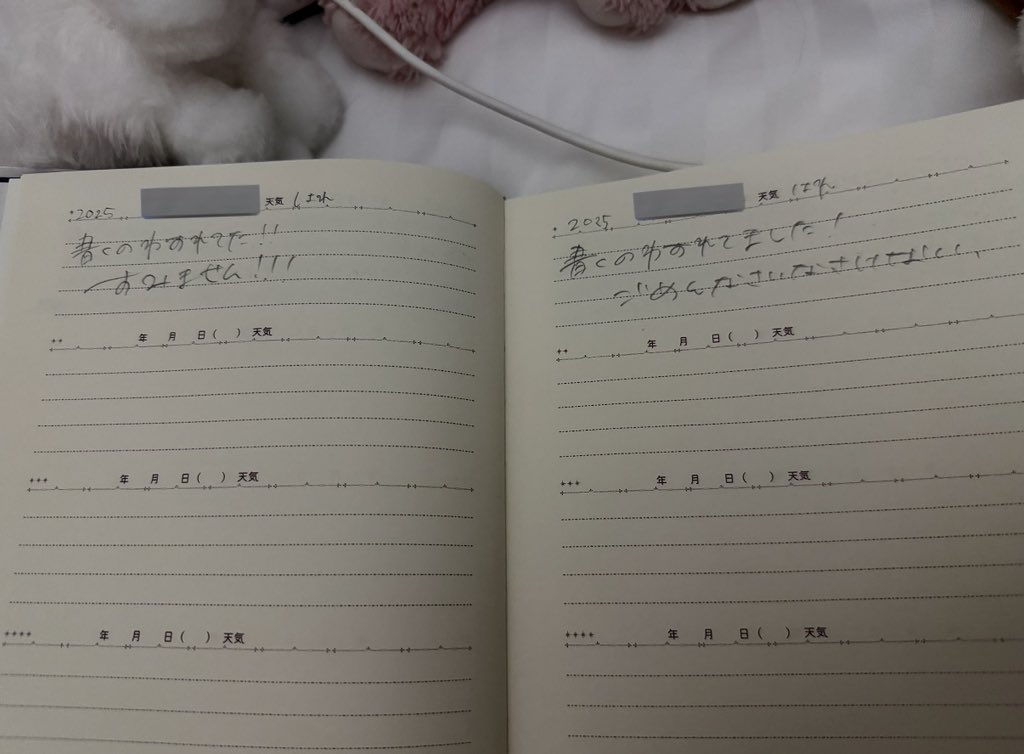 2025 天気 はれ
書くのわすれてた!!
すみません!!!
年 月 日( ) 天気
年 月 日( ) 天気
年 月 日( ) 天気
2025. 天気 はれ
書くのわすれてました!
ごめんなさいなさけない
年 月 日( ) 天気
年 月 日( ) 天気
年 月 日( ) 天気